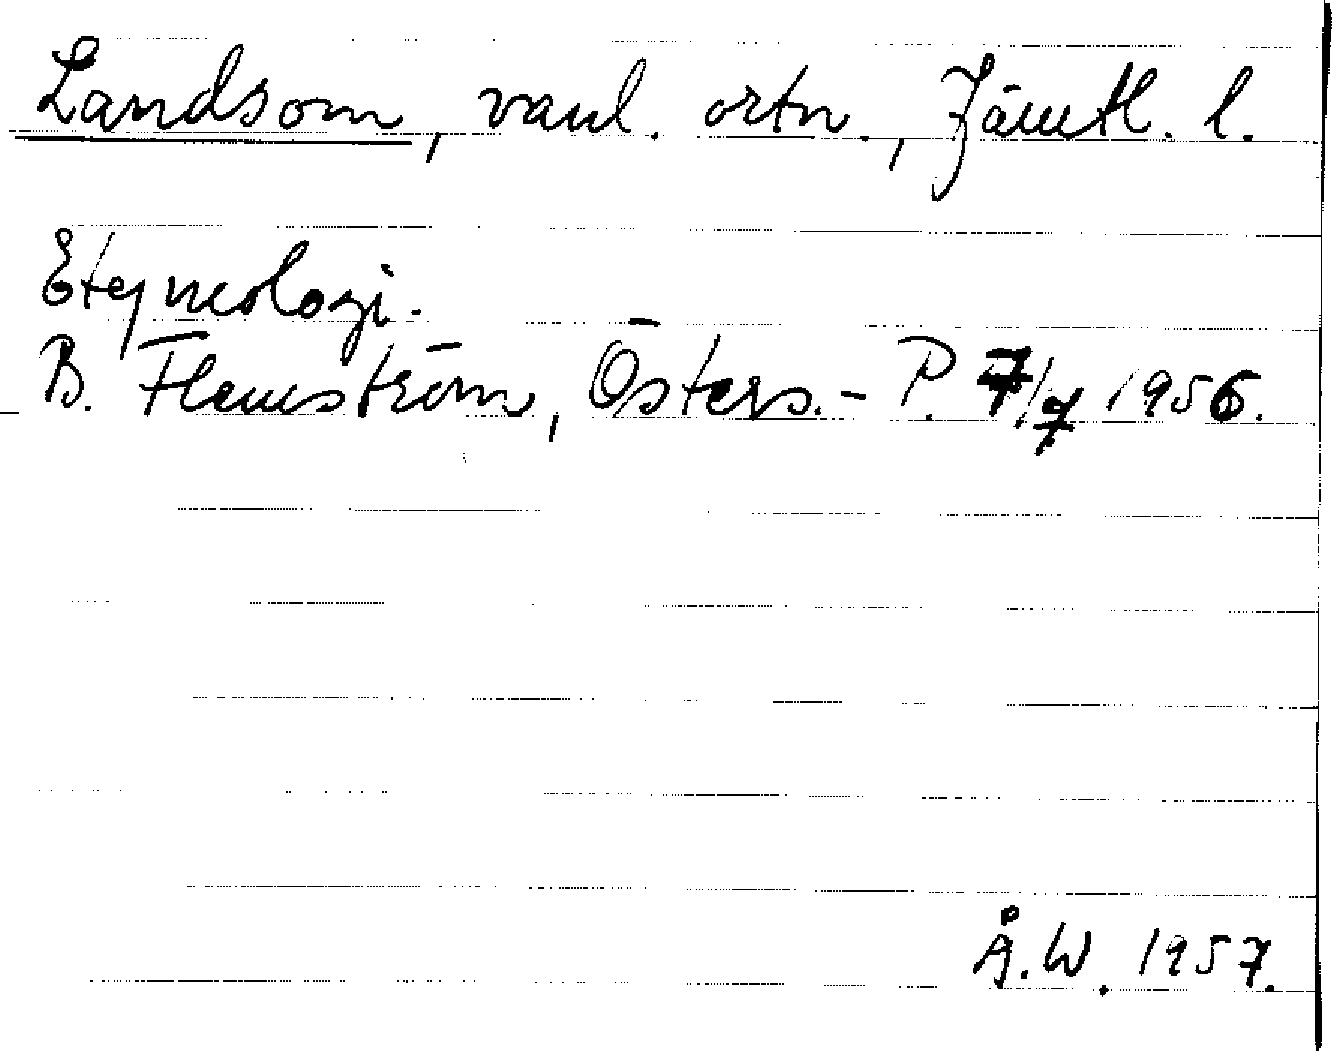 Landsom, vanl. ortn., Jämtl. l.
Etymologi.
B. Flemström, Österś.-P. 7/7 1956.
Å.W. 1957.